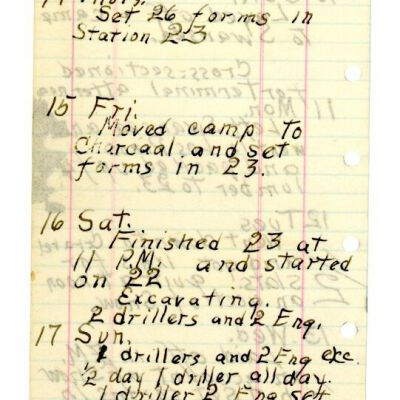 14 Thurs.
Set 26 forms in
Station 23
15 Fri.
Moved camp to
Charcoal and set
forms in 23.
16 Sat.
Finished 23 at
11 P.M. and started
on 22
Excavating.
2 drillers and 2 Eng.
17 Sun.
1 drillers and 2 Eng exc.
½ day 1 driller all day.
1 driller 2 Eng set